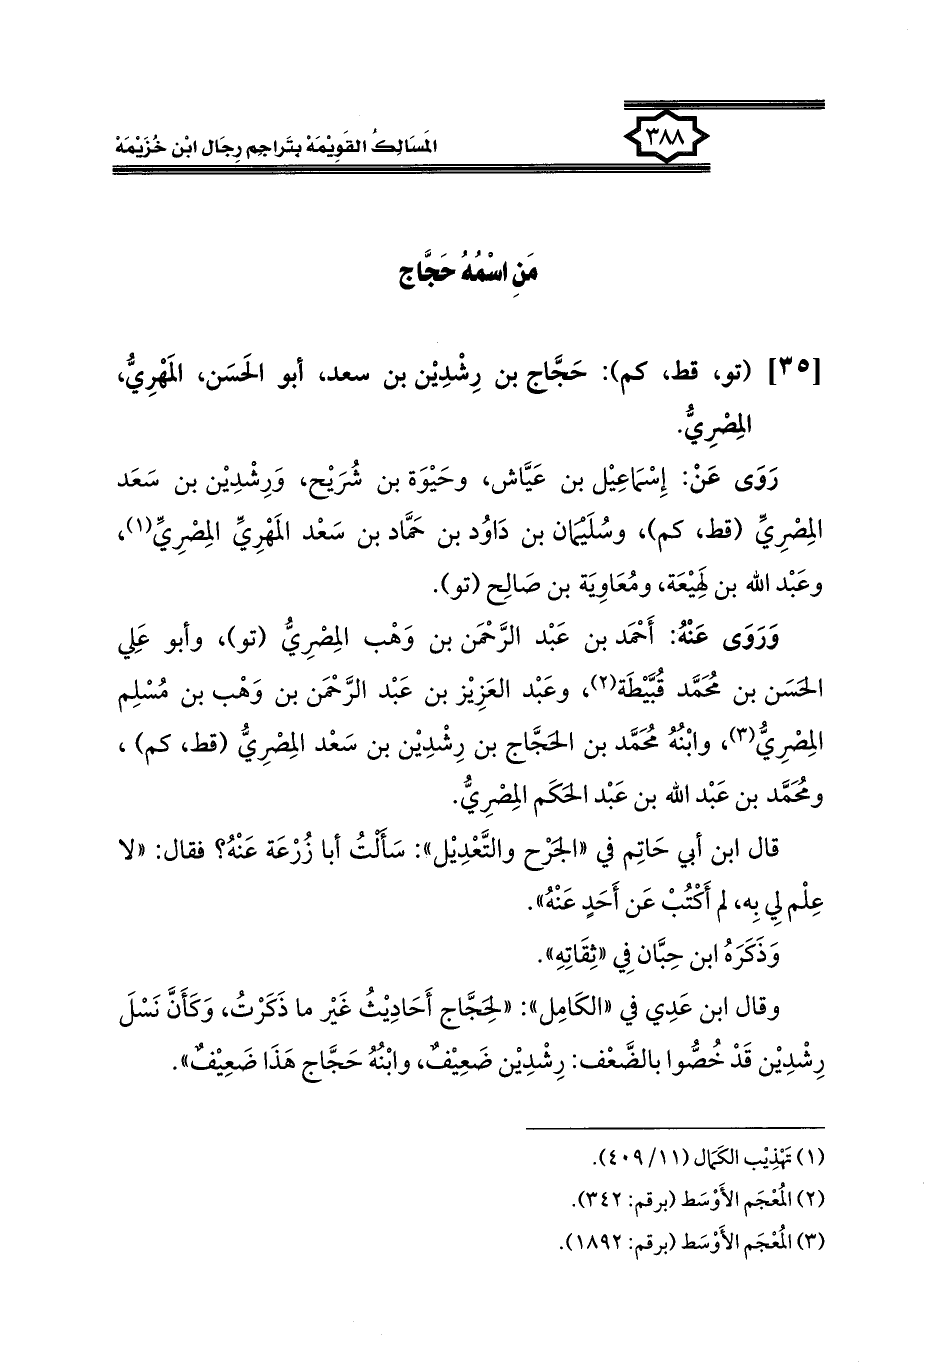 ٣٨٨
المَسَالِكُ القَوِيْمَةْ بِتَراجِم رِجَال ابْن خُزَيْمَةْ
مَنِ اسْمُهُ حَجَّاج
[٣٥] (تو، قط، كم): حَجَّاج بن رِشْدِيْن بن سعد، أبو الحَسَن، المَهْرِيُّ،
المِصْرِيُّ.
رَوَى عَنْ: إِسْمَاعِيْل بن عَيَّاش، وحَيْوَة بن شُرَيْح، وَرِشْدِيْن بن سَعَد
المِصْرِيِّ (قط، كم)، وسُلَيْمَان بن دَاوُد بن حَمَّاد بن سَعْد المَهْرِيِّ المِصْرِيِّ(١)،
وعَبْد الله بن لَهِيْعَة، ومُعَاوِيَة بن صَالِح (تو).
وَرَوَى عَنْهُ: أَحْمَد بن عَبْد الرَّحْمَن بن وَهْب المِصْرِيُّ (تو)، وأبو عَلِي
الحَسَن بن مُحَمَّد قُبَّيْطَة(٢)، وعَبْد العَزِيْز بن عَبْد الرَّحْمَن بن وَهْب بن مُسْلِم
المِصْرِيُّ(٣)، وابْنُهُ مُحَمَّد بن الحَجَّاج بن رِشْدِيْن بن سَعْد المِصْرِيُّ (قط، كم) ،
ومُحَمَّد بن عَبْد الله بن عَبْد الحَكَم المِصْرِيُّ.
قال ابن أبي حَاتِم في «الجَرْح والتَّعْدِيْل»: سَأَلْتُ أبا زُرْعَة عَنْهُ؟ فقال: «لا
عِلْم لِي بِه، لم أَكْتُبْ عَن أَحَدٍ عَنْهُ».
وَذَكَرَهُ ابن حِبَّان فِي «ثِقَاتِهِ».
وقال ابن عَدِي في «الكَامِل»: «لِحَجَّاج أَحَادِيْثُ غَيْر ما ذَكَرْتُ، وَكَأَنَّ نَسْلَ
رِشْدِيْن قَدْ خُصُّوا بالضَّعْف: رِشْدِيْن ضَعِيْفٌ، وابْنُهُ حَجَّاج هَذَا ضَعِيْفٌ».
(١) تَهْذِيْب الكَمَال (١١/ ٤٠٩).
(٢) المُعْجَم الأَوْسَط (برقم: ٣٤٢).
(٣) المُعْجَم الأَوْسَط (برقم: ١٨٩٢).